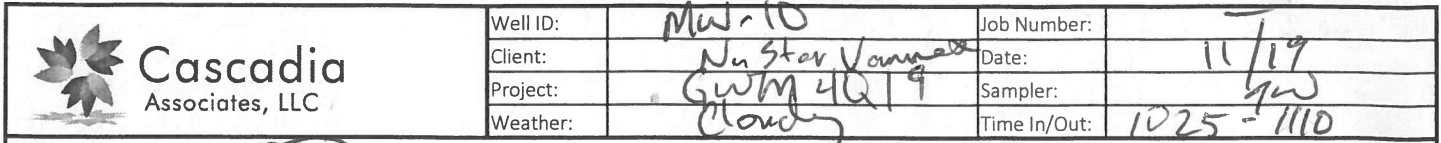 Cascadia
Associates, LLC
Well ID: MW-10 Job Number: —
Client: NuStar Date: 11/19
Project: GWM 4Q19 Sampler:
Weather: Cloudy Time In/Out: 1025 - 1110